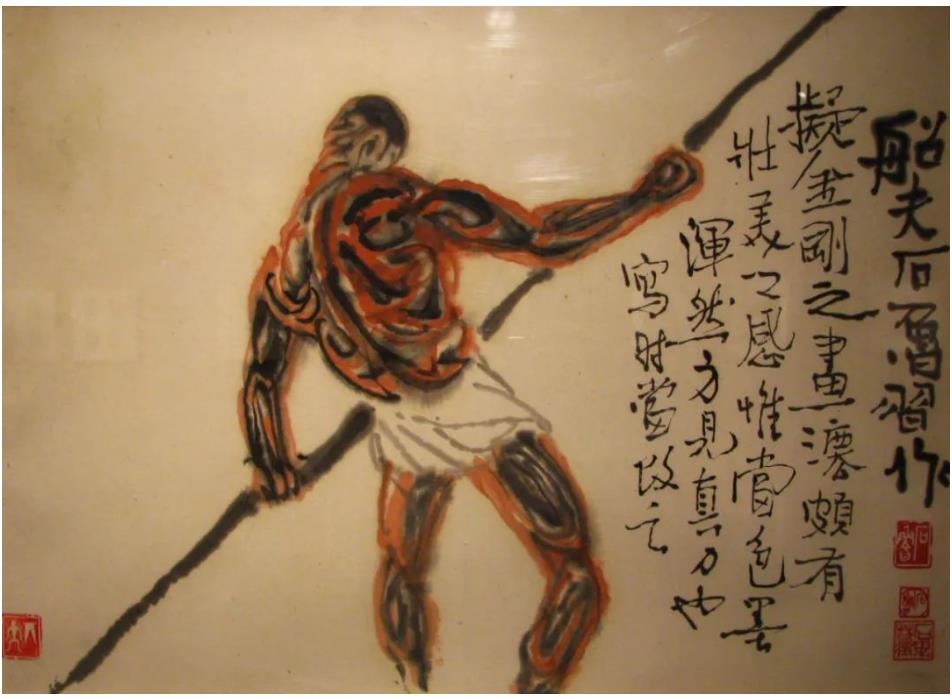 船夫石魯習作
擬金剛之畫灋頗有
壯美之感惟當色墨
渾然方見真力也
寫时當改之